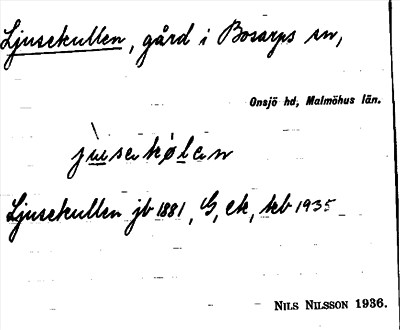 Ljusekullen, gård i Bosarps sn,
Onsjö hd, Malmöhus län.
jùsekølen
Ljusekullen jb 1881, G, ek, kb 1935
NILS NILSSON 1936.